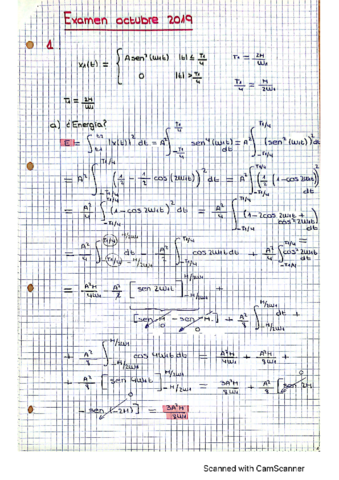 Examen octubre 2019
1
x₁(t) = { A sen²(ω₁t) |t| ≤ T₁/4 T₁ = 2π/ω₁
0 |t| > T₁/4 T₁/4 = π/2ω₁
T₁ = 2π/ω₁
a) ¿Energía?
E = ∫ (x(t))² dt = A² ∫_{-T₁/4}^{T₁/4} sen⁴(ω₁t) dt = A² ∫_{-T₁/4}^{T₁/4} (sen²(ω₁t))² dt
= A² ∫_{-T₁/4}^{T₁/4} (1/2 - 1/2 cos(2ω₁t))² dt = A² ∫_{-T₁/4}^{T₁/4} (1/2 (1-cos 2ω₁t))² dt
= A²/4 ∫_{-T₁/4}^{T₁/4} (1-cos 2ω₁t)² dt = A²/4 ∫_{-T₁/4}^{T₁/4} (1-2cos 2ω₁t + cos² 2ω₁t) dt =
= A²/4 ∫_{-T₁/4 → -π/2ω₁}^{T₁/4 → π/2ω₁} dt - A²/2 ∫_{-T₁/4}^{T₁/4} cos 2ω₁t dt + A²/4 ∫_{-T₁/4}^{T₁/4} cos² 2ω₁t dt
= A²π/4ω₁ - [sen 2ω₁t]_{-π/2ω₁}^{π/2ω₁} +
[sen π - sen -π] + A²/8 ∫_{-π/2ω₁}^{π/2ω₁} dt +
+ A²/8 ∫_{-π/2ω₁}^{π/2ω₁} cos 4ω₁t dt = A²π/4ω₁ + A²π/8ω₁ +
+ A²/8 [sen 4ω₁t]_{-π/2ω₁}^{π/2ω₁} = 3A²π/8ω₁ + A²/8 [sen 2π
- sen (-2π)] = 3A²π/8ω₁
Scanned with CamScanner